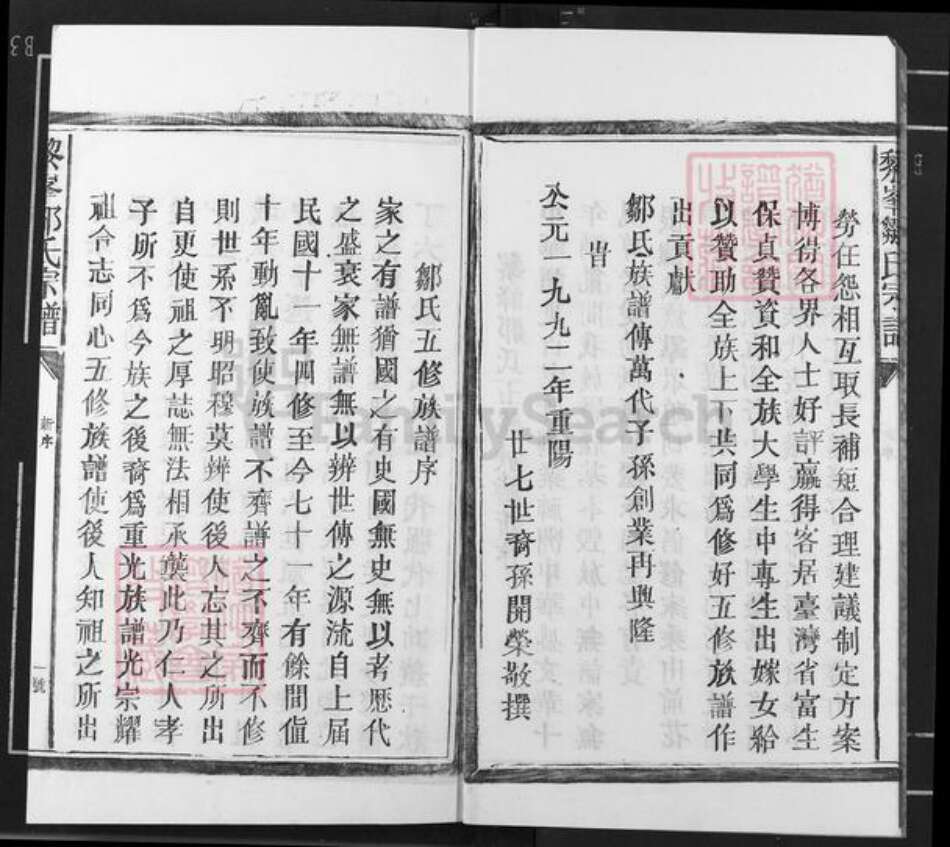 勞任怨相互取長補短合理建議制定方案
博得各界人士好評贏得客居臺灣省富生
保貞贊資和全族大學生中專生出嫁女給
以贊助全族上下共同爲修好五修族譜作
出貢獻
鄒氏族譜傳萬代子孫創業再興隆
旹
公元一九九二年重陽
廿七世裔孫開榮敬撰
鄒氏五修族譜序
家之有譜猶國之有史國無史無以考歷代
之盛衰家無譜無以辨世傳之源流自上届
民國十一年四修至今七十一年有餘間值
十年動亂致使族譜不齊譜之不齊而不修
則世系不明昭穆莫辨使後人忘其之所出
自更使祖之厚誌無法相承龔此乃仁人孝
子所不爲今族之後裔爲重光族譜光宗耀
祖合志同心五修族譜使後人知祖之所出
黎峯鄒氏宗譜
新序
一號
FamilySearch